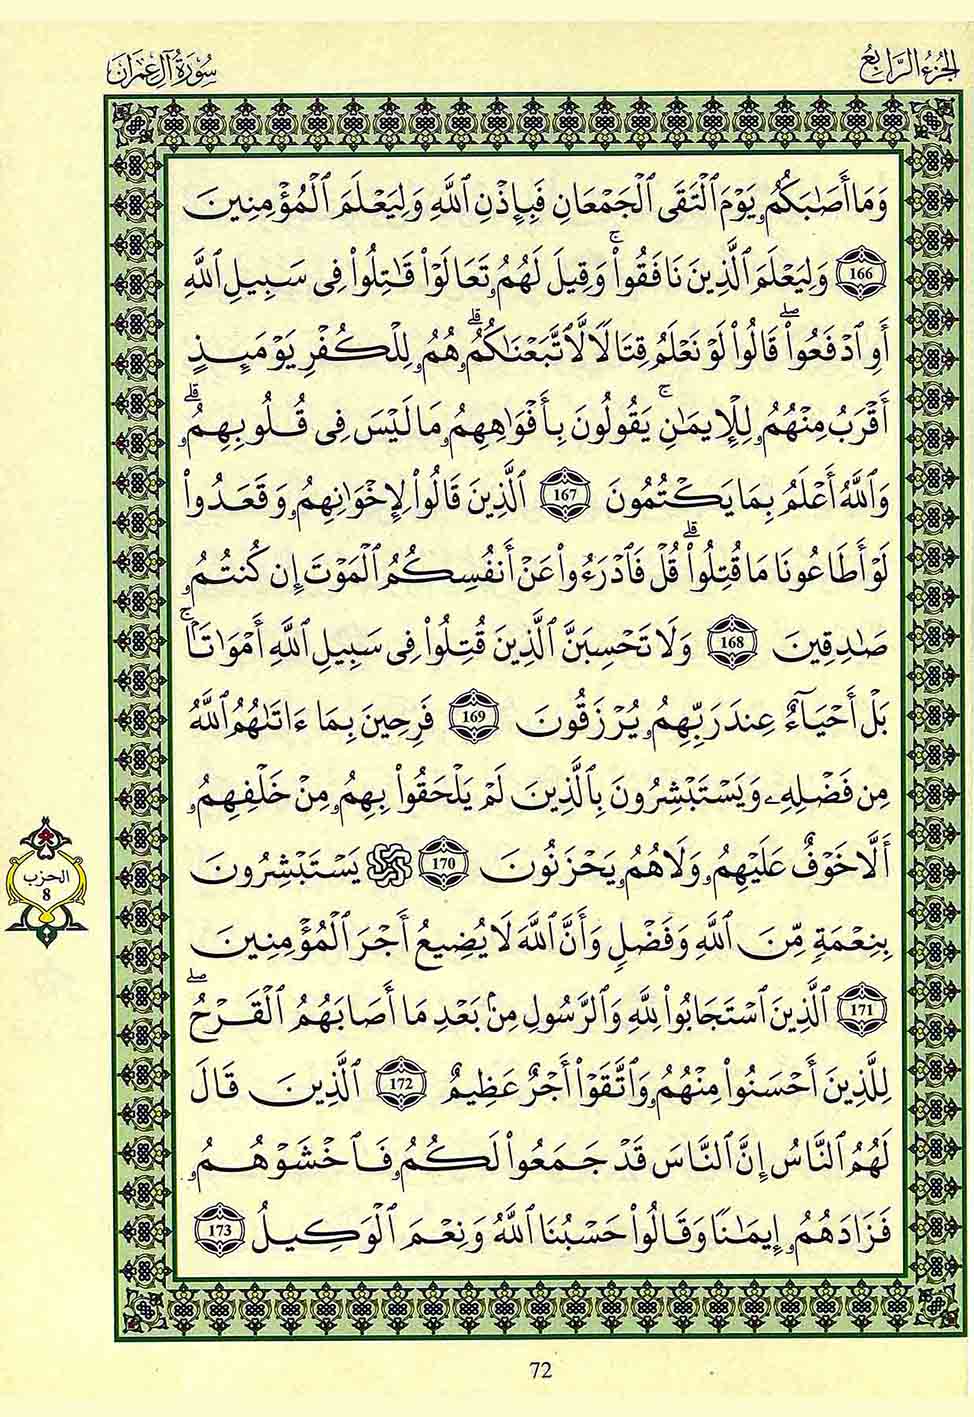 الجزء الرابع
سورة آل عمران
وَمَا أَصَٰبَكُمُۥ يَوْمَ ٱلْتَقَى ٱلْجَمْعَانِ فَبِإِذْنِ ٱللَّهِ وَلِيَعْلَمَ ٱلْمُؤْمِنِينَ
166 وَلِيَعْلَمَ ٱلَّذِينَ نَافَقُوا۟ ۚ وَقِيلَ لَهُمُۥ تَعَالَوْا۟ قَٰتِلُوا۟ فِى سَبِيلِ ٱللَّهِ
أَوِ ٱدْفَعُوا۟ ۖ قَالُوا۟ لَوْ نَعْلَمُ قِتَالًا لَّٱتَّبَعْنَٰكُمُۥ ۗ هُمُۥ لِلْكُفْرِ يَوْمَئِذٍ
أَقْرَبُ مِنْهُمُۥ لِلْإِيمَٰنِ ۚ يَقُولُونَ بِأَفْوَٰهِهِمُۥ مَا لَيْسَ فِى قُلُوبِهِمُۥ ۗ
وَٱللَّهُ أَعْلَمُ بِمَا يَكْتُمُونَ 167 ٱلَّذِينَ قَالُوا۟ لِإِخْوَٰنِهِمُۥ وَقَعَدُوا۟
لَوْ أَطَاعُونَا مَا قُتِلُوا۟ ۗ قُلْ فَٱدْرَءُوا۟ عَنْ أَنفُسِكُمُ ٱلْمَوْتَ إِن كُنتُمُۥ
صَٰدِقِينَ 168 وَلَا تَحْسِبَنَّ ٱلَّذِينَ قُتِلُوا۟ فِى سَبِيلِ ٱللَّهِ أَمْوَٰتًۢا ۚ
بَلْ أَحْيَآءٌ عِندَ رَبِّهِمُۥ يُرْزَقُونَ 169 فَرِحِينَ بِمَا ءَاتَىٰهُمُ ٱللَّهُ
مِن فَضْلِهِۦ وَيَسْتَبْشِرُونَ بِٱلَّذِينَ لَمْ يَلْحَقُوا۟ بِهِمُۥ مِنْ خَلْفِهِمُۥ
أَلَّا خَوْفٌ عَلَيْهِمُۥ وَلَا هُمُۥ يَحْزَنُونَ 170 يَسْتَبْشِرُونَ
الحزب
8
بِنِعْمَةٍ مِّنَ ٱللَّهِ وَفَضْلٍ وَأَنَّ ٱللَّهَ لَا يُضِيعُ أَجْرَ ٱلْمُؤْمِنِينَ
171 ٱلَّذِينَ ٱسْتَجَابُوا۟ لِلَّهِ وَٱلرَّسُولِ مِنۢ بَعْدِ مَا أَصَابَهُمُ ٱلْقَرْحُ ۖ
لِلَّذِينَ أَحْسَنُوا۟ مِنْهُمُۥ وَٱتَّقَوْا۟ أَجْرٌ عَظِيمٌ 172 ٱلَّذِينَ قَالَ
لَهُمُ ٱلنَّاسُ إِنَّ ٱلنَّاسَ قَدْ جَمَعُوا۟ لَكُمُۥ فَٱخْشَوْهُمُۥ
فَزَادَهُمُۥ إِيمَٰنًا وَقَالُوا۟ حَسْبُنَا ٱللَّهُ وَنِعْمَ ٱلْوَكِيلُ 173
72